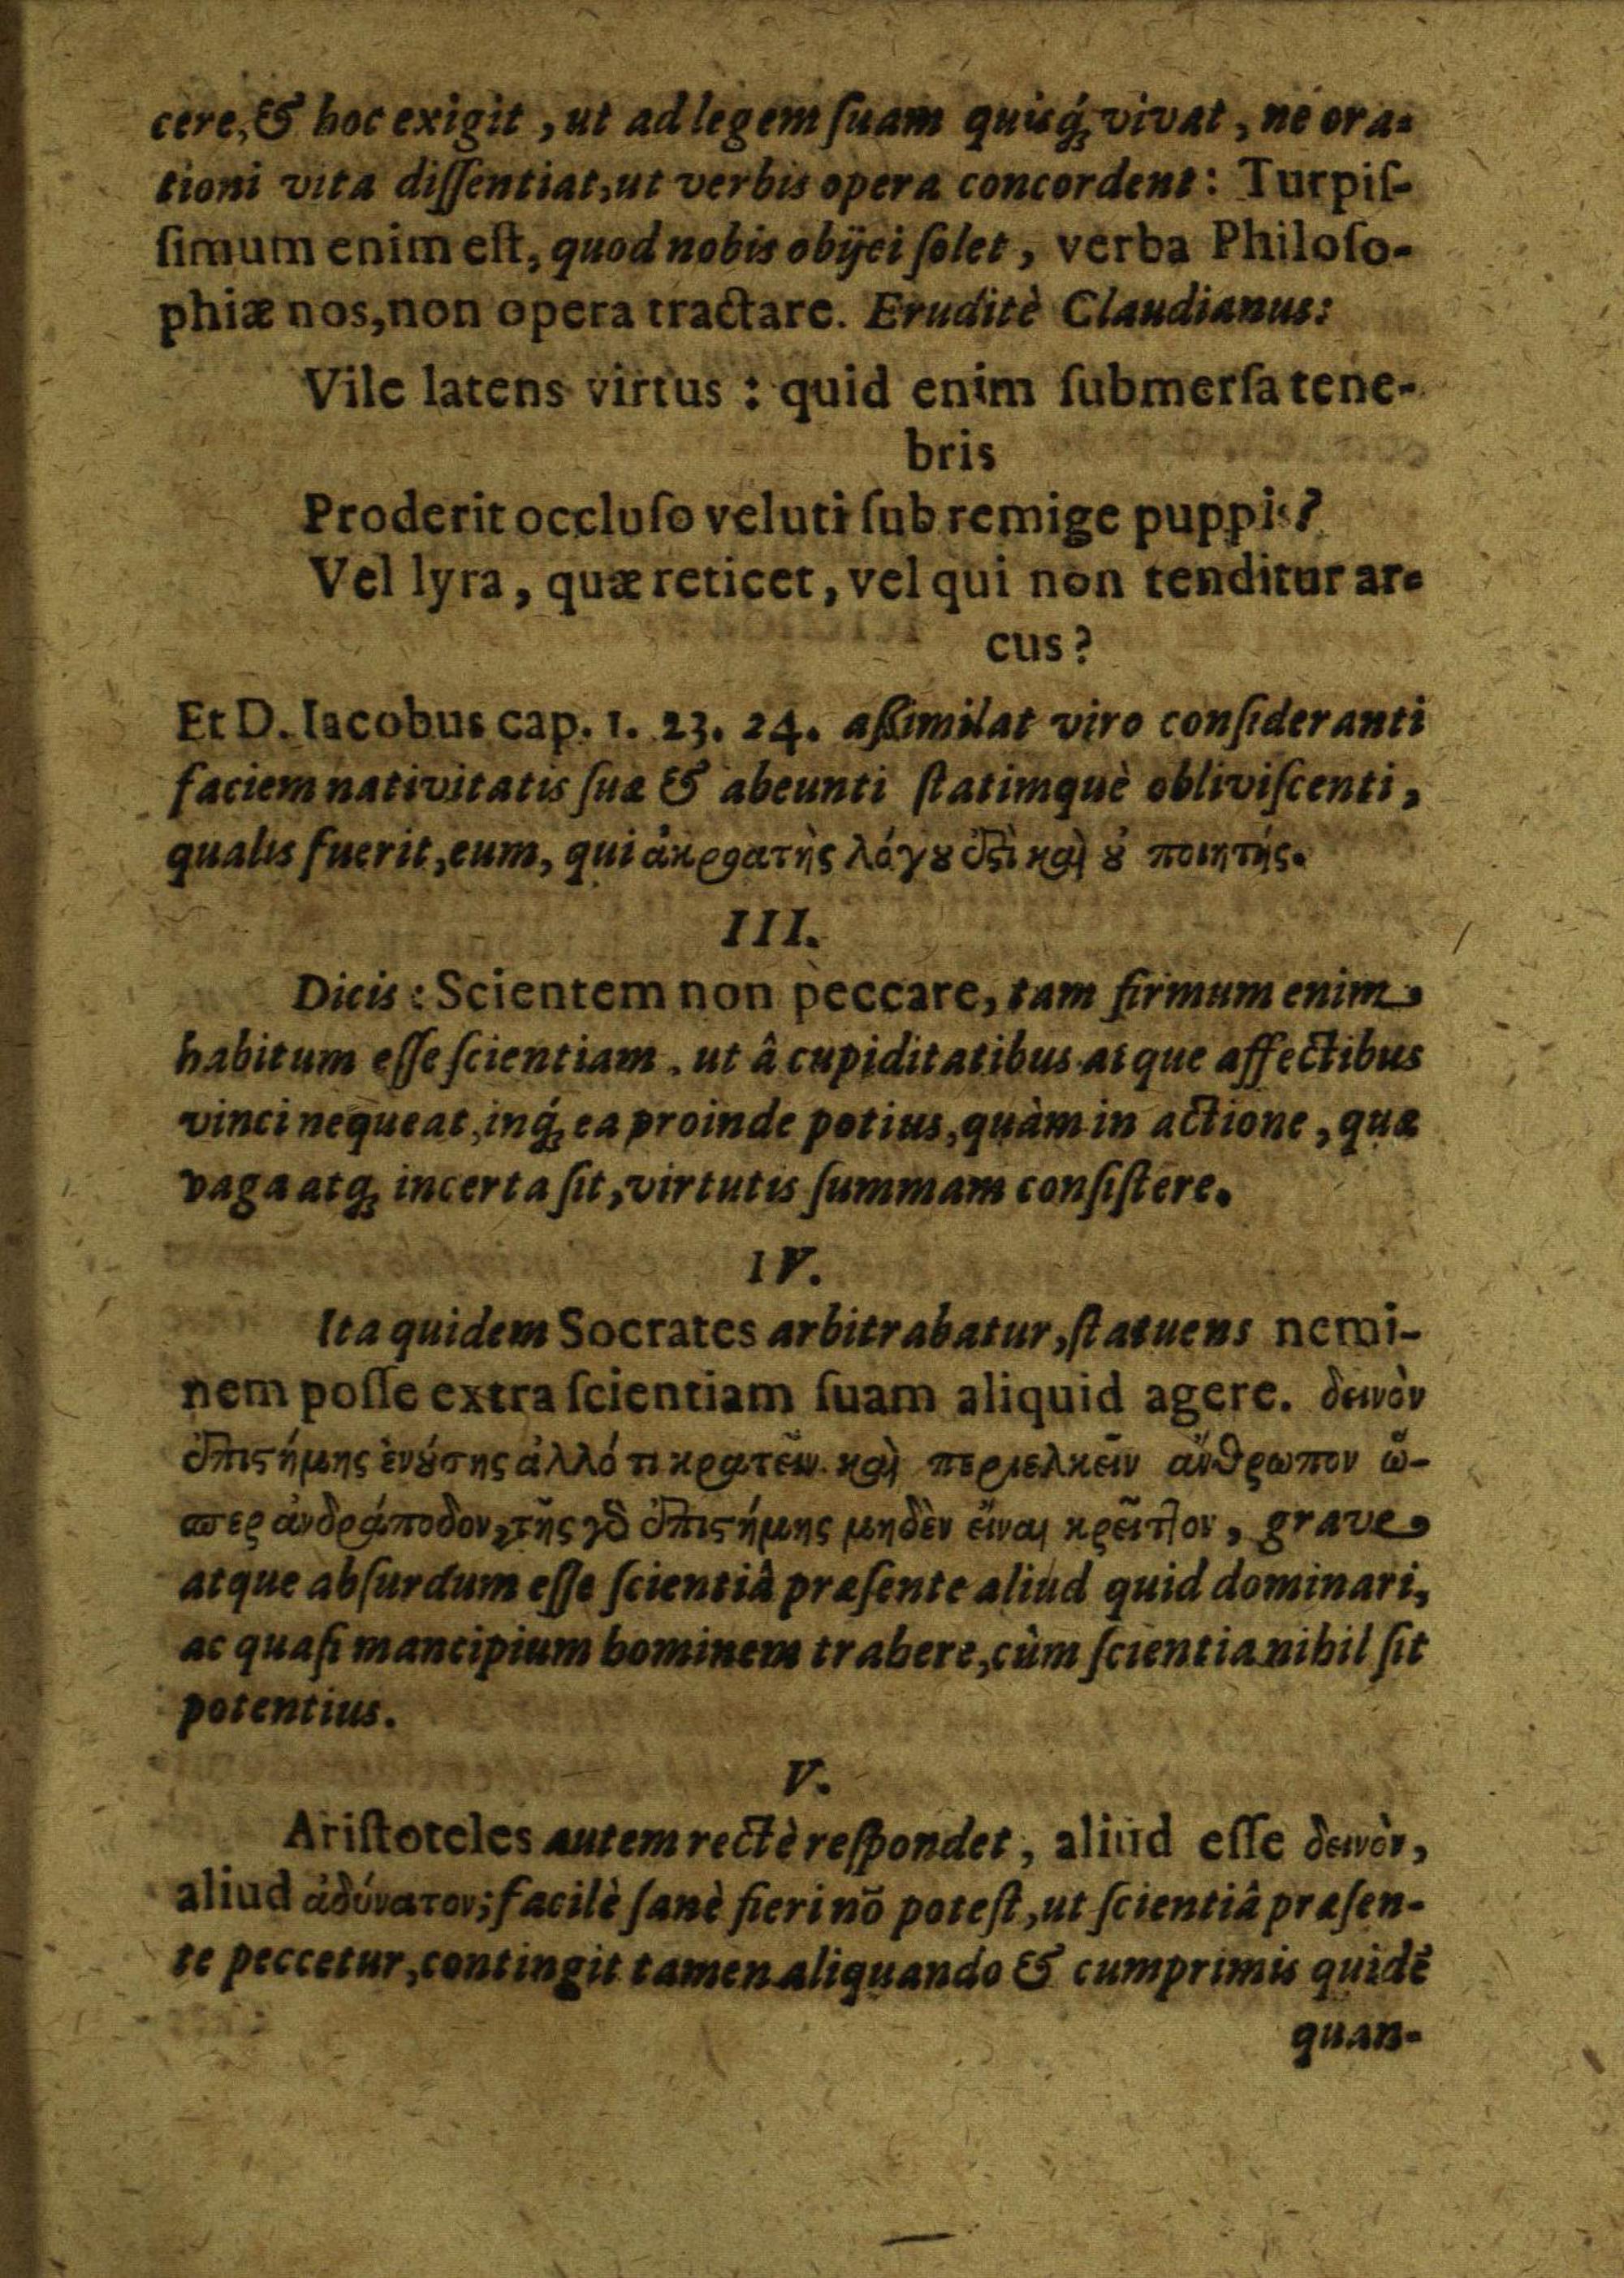 cere, & hoc exigit, ut ad legem ſuam quisq́; vivat, ne ora-
tioni vita diſſentiat, ut verbis opera concordent: Turpiſ-
ſimum enim eſt, quod nobis obijci ſolet, verba Philoſo-
phiæ nos, non opera tractare. Eruditè Claudianus:
Vile latens virtus: quid enim ſubmerſa tene-
bris
Proderit occluſo veluti ſub remige puppis?
Vel lyra, quæ reticet, vel qui non tenditur ar-
cus?
Et D. Iacobus cap. 1. 23. 24. aſsimilat viro conſideranti
faciem nativitatis ſuæ & abeunti ſtatimquè obliviſcenti,
qualis fuerit, eum, qui ἀκροατὴς λόγȣ ὅςι καὶ ȣ̓ ποιητής.
III.
Dicis: Scientem non peccare, tam firmum enim
habitum eſſe ſcientiam, ut â cupiditatibus atque affectibus
vinci nequeat, inq́; ea proinde potius, quàm in actione, quæ
vaga atq; incerta ſit, virtutis ſummam conſiſtere.
IV.
Ita quidem Socrates arbitrabatur, ſtatuens nemi-
nem poſſe extra ſcientiam ſuam aliquid agere. δεινὸν
ἐπιςήμης ἐνȣ́σης ἀλλό τι κρατεῖν καὶ περιελκεῖν ἄνθρωπον ὥ-
σπερ ἀνδράποδον, τῆς γὸ ἐπιςήμης μηδὲν εἴναι κρεῖττον, grave
atque abſurdum eſſe ſcientiâ præſente aliud quid dominari,
ac quaſi mancipium hominem trahere, cùm ſcientia nihil ſit
potentius.
V.
Ariſtoteles autem rectè reſpondet, aliud eſſe δεινὸν,
aliud ἀδύνατον; facilè ſanè fieri nō poteſt, ut ſcientiâ præſen-
te peccetur, contingit tamen aliquando & cumprimis quidē
quan-